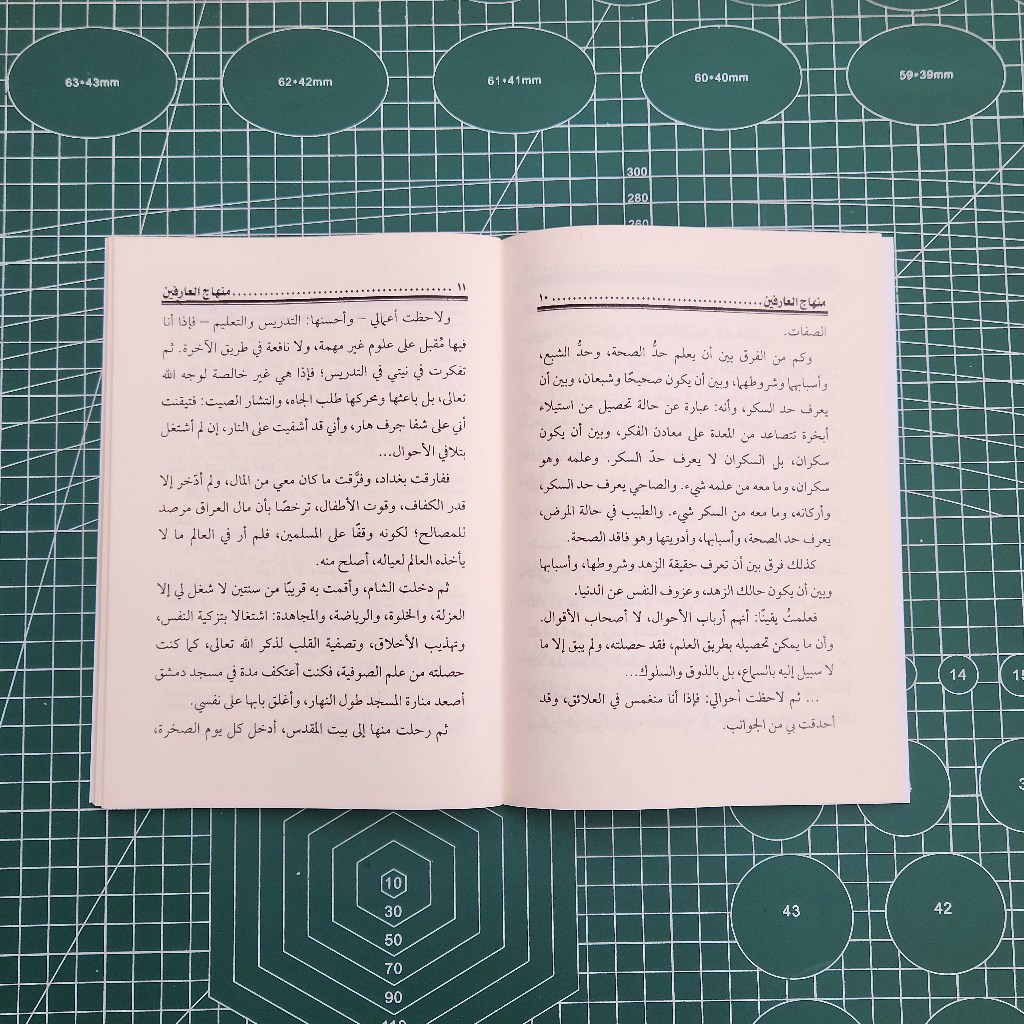 63*43mm
62*42mm
61*41mm
60*40mm
59*39mm
300
280
260
منهاج العارفين ........................................ ١٠
الصفات.
وكم من الفرق بين أن يعلم حدُّ الصحة، وحدُّ الشبع،
وأسبابهما وشروطهما، وبين أن يكون صحيحًا وشبعان، وبين أن
يعرف حد السكر، وأنه: عبارة عن حالة تحصيل من استيلاء
أبخرة تتصاعد من المعدة على معادن الفكر، وبين أن يكون
سكران، بل السكران لا يعرف حدّ السكر. وعلمه وهو
سكران، وما معه من علمه شيء. والصاحي يعرف حد السكر،
وأركانه، وما معه من السكر شيء. والطبيب في حالة المرض،
يعرف حد الصحة، وأسبابها، وأدويتها وهو فاقد الصحة.
كذلك فرق بين أن تعرف حقيقة الزهد وشروطها، وأسبابها
وبين أن يكون حالك الزهد، وعزوف النفس عن الدنيا.
فعلمتُ يقينًا: أنهم أرباب الأحوال، لا أصحاب الأقوال.
وأن ما يمكن تحصيله بطريق العلم، فقد حصلته، ولم يبق إلا ما
لا سبيل إليه بالسماع، بل بالذوق والسلوك...
... ثم لاحظت أحوالي: فإذا أنا منغمس في العلائق، وقد
أحدقت بي من الجوانب.
١١ ........................................ منهاج العارفين
ولاحظت أعمالي – وأحسنها: التدريس والتعليم – فإذا أنا
فيها مُقبل على علوم غير مهمة، ولا نافعة في طريق الآخرة. ثم
تفكرت في نيتي في التدريس؛ فإذا هي غير خالصة لوجه الله
تعالى، بل باعثها ومحركها طلب الجاه، وانتشار الصيت: فتيقنت
أني على شفا جرف هار، وأني قد أشفيت على النار، إن لم أشتغل
بتلافي الأحوال...
ففارقت بغداد، وفرَّقت ما كان معي من المال، ولم أدّخر إلا
قدر الكفاف، وقوت الأطفال، ترخصًا بأن مال العراق مرصد
للمصالح؛ لكونه وقفًا على المسلمين، فلم أر في العالم ما لا
يأخذه العالم لعياله، أصلح منه.
ثم دخلت الشام، وأقمت به قريبًا من سنتين لا شغل لي إلا
العزلة، والخلوة، والرياضة، والمجاهدة: اشتغالا بتزكية النفس،
وتهذيب الأخلاق، وتصفية القلب لذكر الله تعالى، كما كنت
حصلته من علم الصوفية، فكنت أعتكف مدة في مسجد دمشق
أصعد منارة المسجد طول النهار، وأغلق بابها على نفسي.
ثم رحلت منها إلى بيت المقدس، أدخل كل يوم الصخرة،
14
43
42
10
30
50
70
90
110